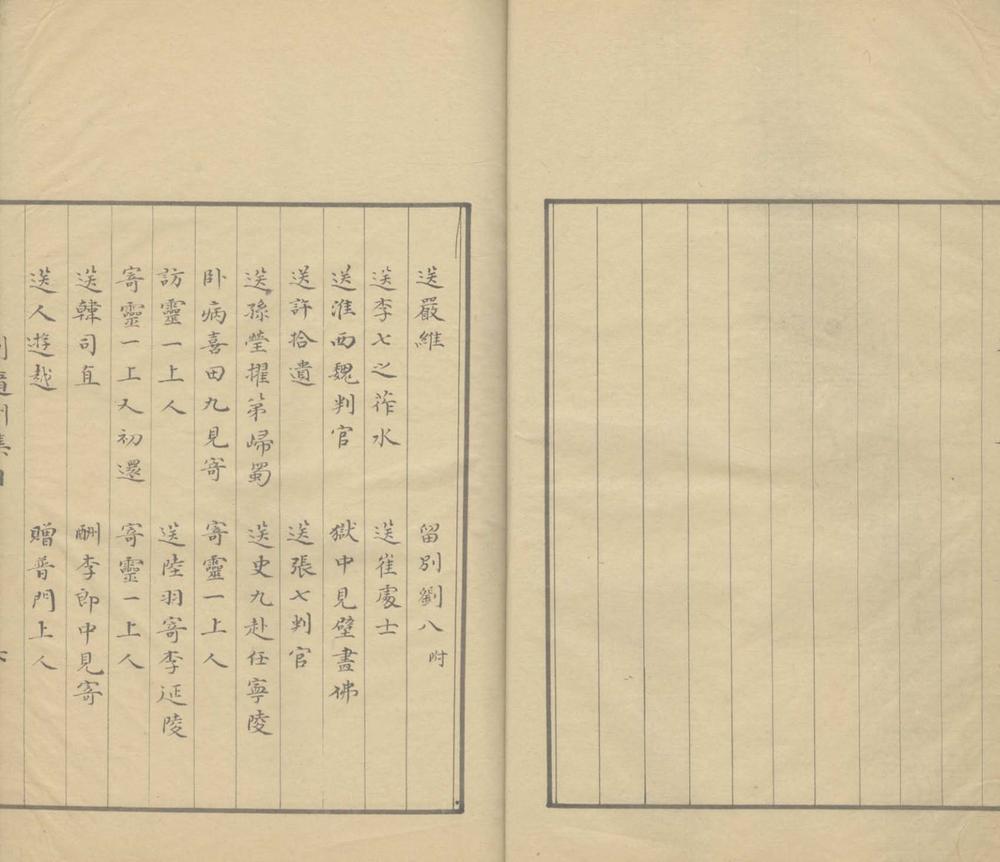 送嚴維 留別劉八附
送李七之莋水 送崔處士
送淮西魏判官 獄中見壁畫佛
送許拾遺 送張七判官
送孫瑩擢第歸蜀 送史九赴任寧陵
卧病喜田九見寄 寄靈一上人
訪靈一上人 送陸羽寄李延陵
寄靈一上人初還 寄靈一上人
送韓司直 酬李郎中見寄
送人遊越 贈普門上人